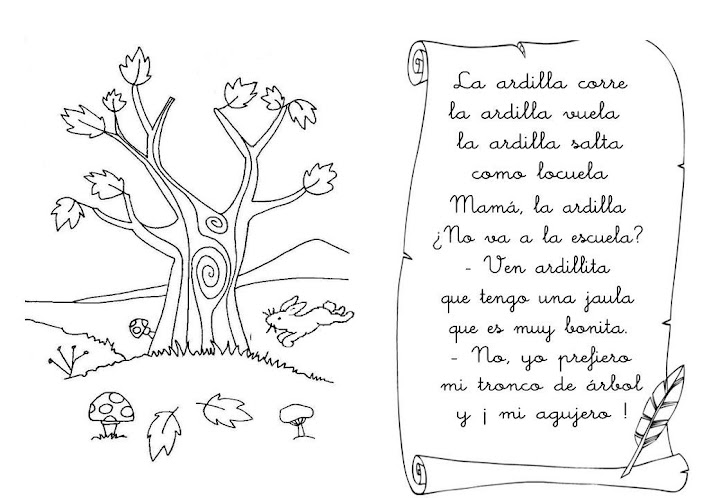 La ardilla corre
la ardilla vuela
la ardilla salta
como locuela
Mamá, la ardilla
¿No va a la escuela?
- Ven ardillita
que tengo una jaula
que es muy bonita.
- No, yo prefiero
mi tronco de árbol
y ¡ mi agujero !